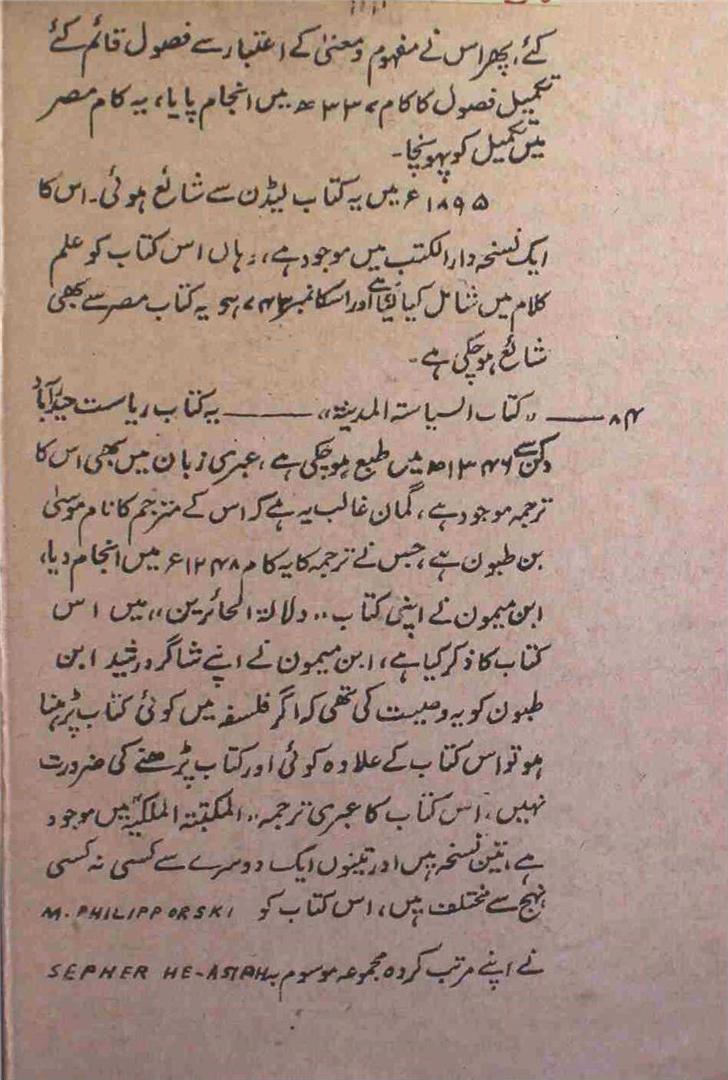 کئے، پھر اس نے مفہوم و معنیٰ کے اعتبار سے فصول قائم کئے
تکمیل فصول کا کام ۳۳۷ھ میں انجام پایا، یہ کام مصر
میں تکمیل کو پہونچا۔
۱۸۹۵ء میں یہ کتاب لیڈن سے شائع ہوئی۔ اس کا
ایک نسخہ دارالکتب میں موجود ہے، وہاں اس کتاب کو علم
کلام میں شامل کیا گیا ہے اور اسکا نمبر ہے یہ کتاب مصر سے بھی
شائع ہو چکی ہے۔
۸۴ — ،، کتاب السیاستہ المدینۃ ،، — یہ کتاب ریاست حیدرآباد
دکن سے ۱۳۴۶ھ میں طبع ہو چکی ہے، عبری زبان میں بھی اس کا
ترجمہ موجود ہے، گمان غالب یہ ہے کہ اس کے مترجم کا نام موسیٰ
بن طبون ہے، جس نے ترجمہ کا یہ کام ۱۲۴۸ء میں انجام دیا،
ابن میمون نے اپنی کتاب ،، دلالۃ الحائرین ،، میں اس
کتاب کا ذکر کیا ہے، ابن میمون نے اپنے شاگرد رشید ابن
طبون کو یہ وصیت کی تھی کہ اگر فلسفہ میں کوئی کتاب پڑھنا
ہو تو اس کتاب کے علاوہ کوئی اور کتاب پڑھنے کی ضرورت
نہیں، اس کتاب کا عبری ترجمہ ،، المکتبتہ الملکیۃ میں موجود
ہے، تین نسخہ ہیں اور تینوں ایک دوسرے سے کسی نہ کسی
نہج سے مختلف ہیں، اس کتاب کو M. PHILIPPORSKI
نے اپنے مرتب کردہ مجموعہ موسوم بہ SEPHER HE-ASIPH